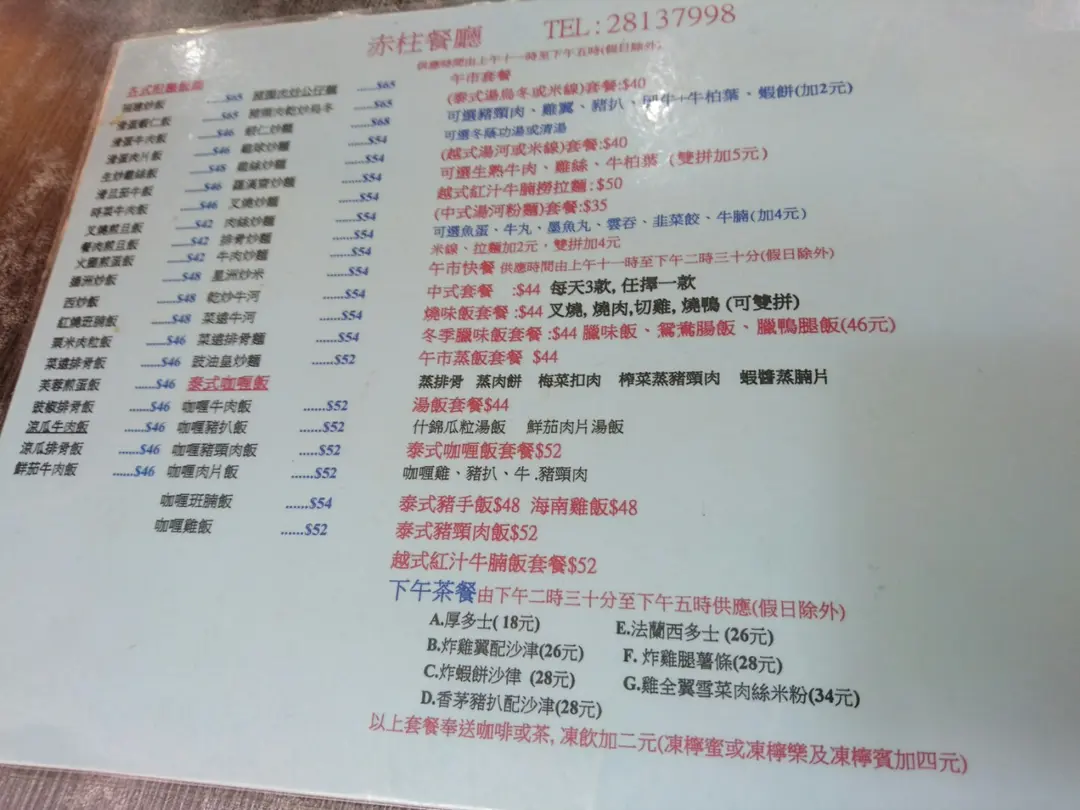 赤柱餐廳 TEL:28137998
供應時間由上午十一時至下午五時(假日除外)
炒飯 ......$65
滑蛋蝦仁飯 ......$65
滑蛋牛肉飯 ......$46
滑蛋肉片飯 ......$46
生炒雞絲飯 ......$48
滑旦茄牛飯 ......$46
時菜牛肉飯 ......$46
叉燒煎旦飯 ......$42
餐肉煎旦飯 ......$42
火腿煎蛋飯 ......$42
炒飯 ......$48
西炒飯 ......$48
紅燒班腩飯 ......$48
粟米肉粒飯 ......$46
菜遠排骨飯 ......$46
芙蓉煎蛋飯 ......$46
豉椒排骨飯 ......$46
涼瓜牛肉飯 ......$46
涼瓜排骨飯 ......$46
鮮茄牛肉飯 ......$46
豬頸肉炒公仔麵 ......$65
豬頸肉乾炒烏冬 ......$65
蝦仁炒麵 ......$68
炒麵 ......$54
雞絲炒麵 ......$54
羅漢齋炒麵 ......$54
叉燒炒麵 ......$54
肉絲炒麵 ......$54
排骨炒麵 ......$54
牛肉炒麵 ......$54
星洲炒米 ......$54
乾炒牛河 ......$54
菜遠牛河 ......$54
菜遠排骨麵 ......$54
豉油皇炒麵 ......$52
泰式咖喱飯
咖喱牛肉飯 ......$52
咖喱豬扒飯 ......$52
咖喱豬頸肉飯 ......$52
咖喱肉片飯 ......$52
咖喱班腩飯 ......$54
咖喱雞飯 ......$52
午市套餐
(泰式湯烏冬或米線)套餐:$40
可選豬頸肉、雞翼、豬扒、牛+牛柏葉、蝦餅(加2元)
可選冬蔭功湯或清湯
(越式湯河或米線)套餐:$40
可選生熟牛肉、雞絲、牛柏葉 (雙拼加5元)
越式紅汁牛腩撈拉麵:$50
(中式湯河粉麵)套餐:$35
可選魚蛋、牛丸、墨魚丸、雲吞、韭菜餃、牛腩(加4元)
米線、拉麵加2元，雙拼加4元
午市快餐 供應時間由上午十一時至下午二時三十分(假日除外)
中式套餐 :$44 每天3款, 任擇一款
燒味飯套餐 :$44 叉燒, 燒肉,切雞, 燒鴨 (可雙拼)
冬季臘味飯套餐 :$44 臘味飯、鴛鴦腸飯、臘鴨腿飯(46元)
午市蒸飯套餐 $44
蒸排骨 蒸肉餅 梅菜扣肉 榨菜蒸豬頸肉 蝦醬蒸腩片
湯飯套餐$44
什錦瓜粒湯飯 鮮茄肉片湯飯
泰式咖喱飯套餐$52
咖喱雞、豬扒、牛.豬頸肉
泰式豬手飯$48 海南雞飯$48
泰式豬頸肉飯$52
越式紅汁牛腩飯套餐$52
下午茶餐由下午二時三十分至下午五時供應(假日除外)
A.厚多士( 18元)
B.炸雞翼配沙津(26元)
C.炸蝦餅沙律 (28元)
D.香茅豬扒配沙津(28元)
E.法蘭西多士 (26元)
F. 炸雞腿薯條(28元)
G.雞全翼雪菜肉絲米粉(34元)
以上套餐奉送咖啡或茶, 凍飲加二元(凍檸蜜或凍檸樂及凍檸賓加四元)